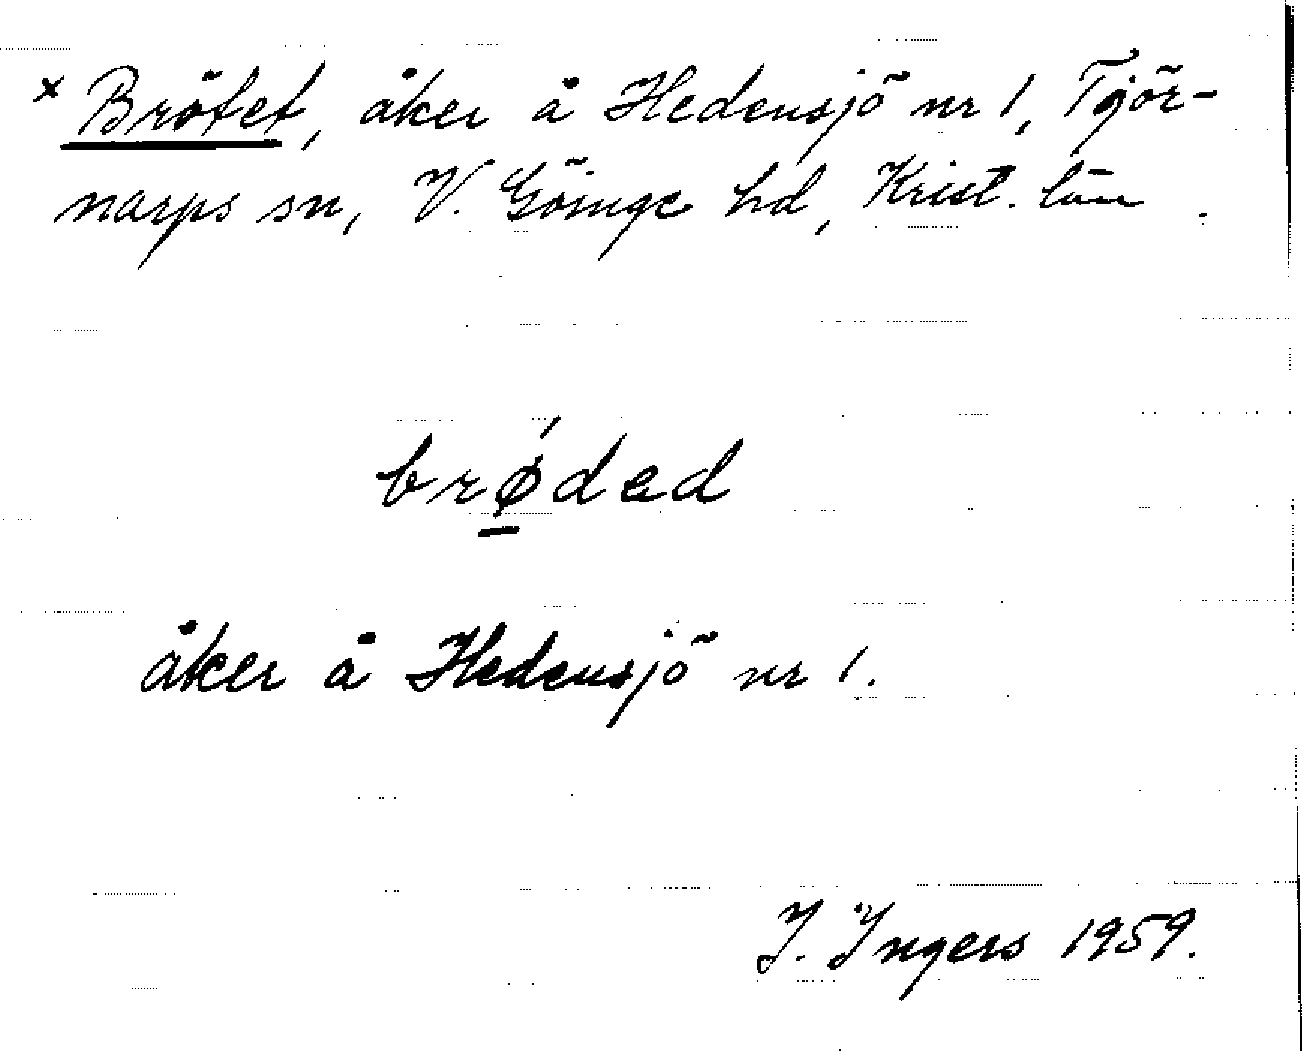 × Brötet, åker å Hedensjö nr 1, Tjör-
narps sn, V. Göinge hd, Krist. län.
brǿded
åker å Hedensjö nr 1.
I. Ingers 1959.